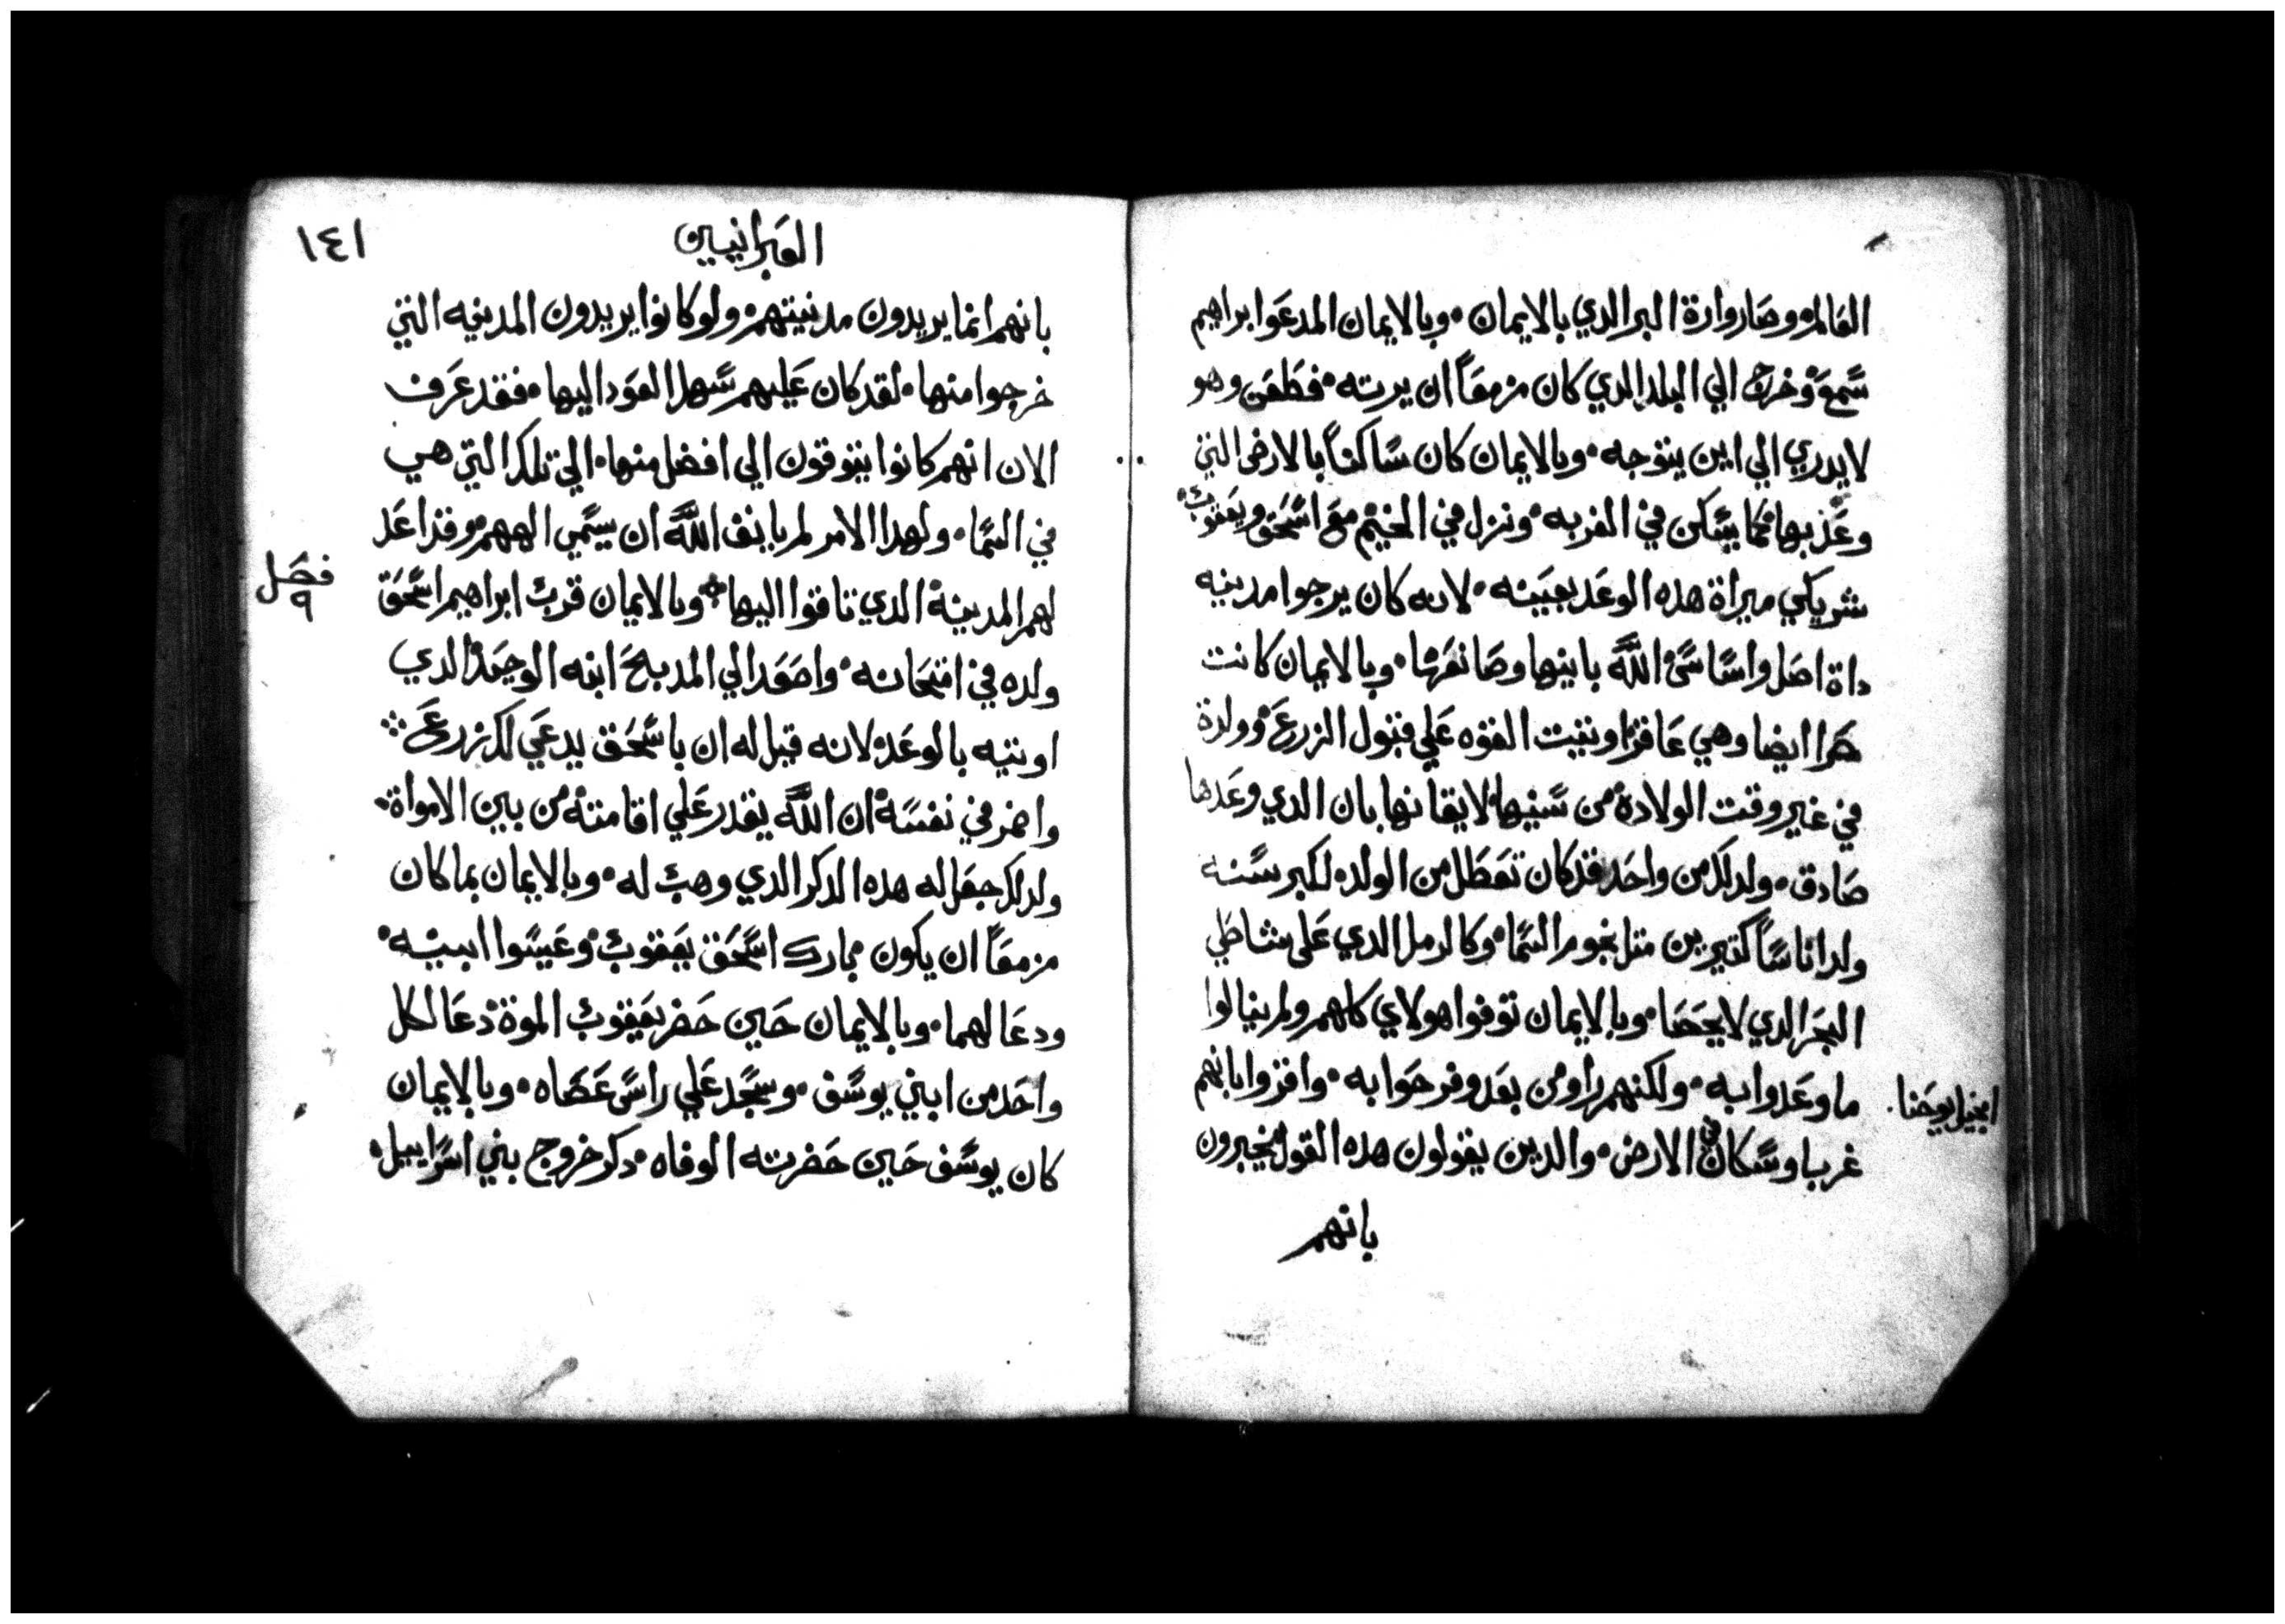 العالم وصار وارة البر الدي بالايمان وبالايمان المدعوا ابراهيم
سمع وخرج الي البلد الدي كان مزمعاً ان يرته فطعن وهو
لا يدري الي اين يتوجه وبالايمان كان ساكناً بالارض التي
وعد بها كما يسكن في الغربه ونزل في الخيم مع اسحق ويعقوب
شريكي ميراة هده الوعد بعينه لانه كان يرجوا مدينه
داة اصل واساس الله بانيها وصانعها وبالايمان كانت
ايضا وهي عاقرا وتيت القوه علي قبول الزرع وولدة
في غير وقت الولادة من سنيها لايقانها بان الدي وعدها
صادق ولدلك من واحد قد كان تعطل من الولد لكبر سنه
ولد اناساً كتيرين متل نجوم السما وكالرمل الدي علي شاطي
البحر الدي لا يحصا وبالايمان توفوا هولاي كلهم ولم ينالوا
ما وعدوا به ولكنهم راوه من بعد وفرحوا به واقروا بانهم
انجيل يوحنا
غربا وسكان في الارض والدين يقولون هده القول يخبرون
بانهم
العبرانيين
١٤١
بانهم انما يريدون مدينتهم ولو كانوا يريدون المدينه التي
خرجوا منها لقد كان عليهم سهلا العود اليها فقد عرف
الان انهم كانوا يتوقون الي افضل منها الي تلك التي هي
في السما ولهدا الامر لم يانف الله ان يسمي الههم وقد اعد
لهم المدينة الدي تاقوا اليها وبالايمان قرب ابراهيم اسحق
فصل
٩
ولده في امتحانه واصعد الي المدبح ابنه الوحيد الدي
اوتيه بالوعد لانه قيل له ان باسحق يدعي لك زرع
واضمر في نفسه ان الله يقدر علي اقامته من بين الامواة
ولدلك جعل له هده الدكر الدي وهب له وبالايمان بما كان
مزمعاً ان يكون بارك اسحق يعقوب وعيسوا ابنيه
ودعا لهما وبالايمان حين حضر يعقوب الموة دعا لكل
واحد من ابني يوسف وسجد علي راس عصاه وبالايمان
كان يوسف حين حضرته الوفاه دكر خروج بني اسراييل